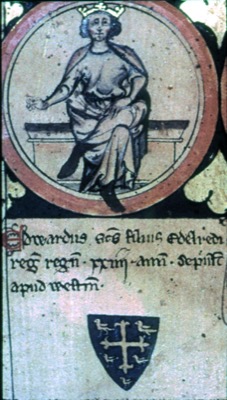 Edwardus scs filius Edelredi
reg regn · xxiiii · ann · Sepult
apud westm ·